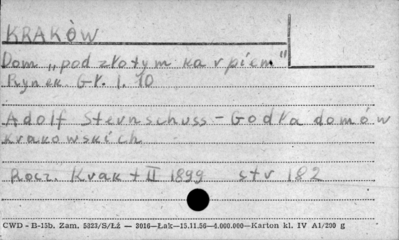 KRAKÓW
Dom „pod złotym karpiem"
Rynek Gł. l. 10
Adolf Sternschuss - Godła domów
krakowskich
Rocz. Krak t II 1899 str 182
CWD - B-15b. Zam. 5823/S/Łź - 3016-Łak-15.11.56-6.000.000-Karton kl. IV A1/200 g